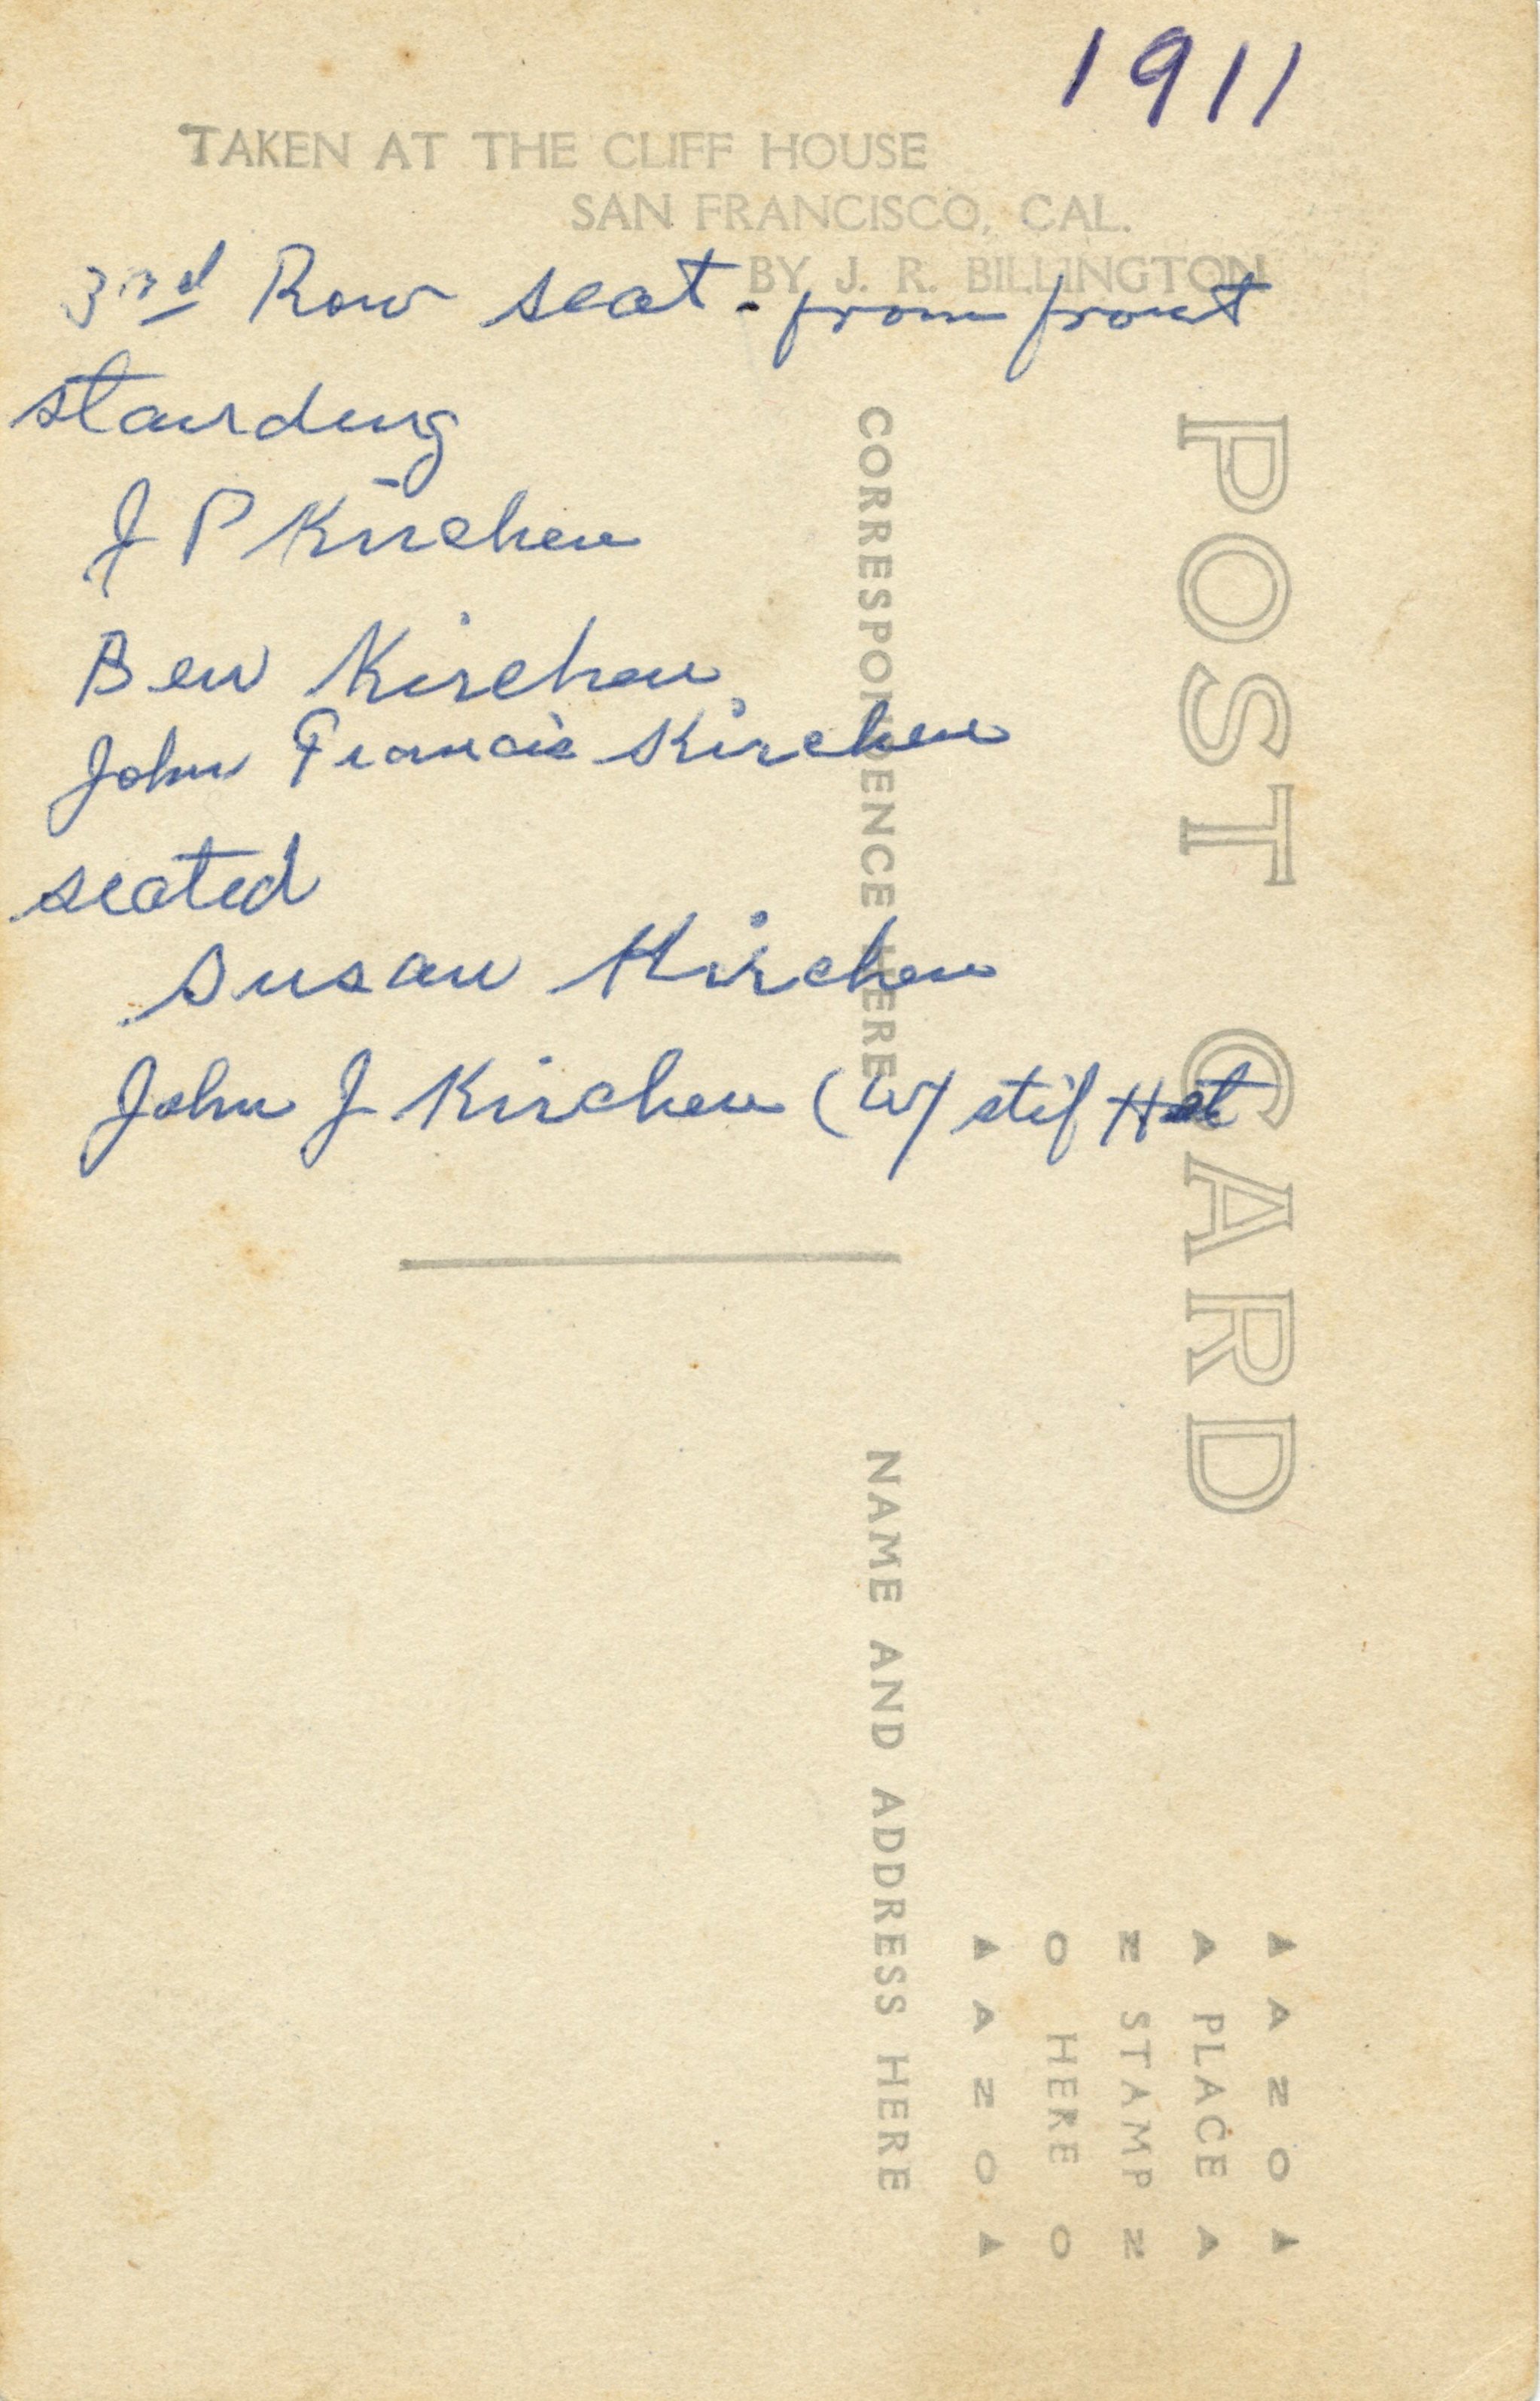 1911
TAKEN AT THE CLIFF HOUSE
SAN FRANCISCO, CAL.
BY J. R. BILLINGTON
3rd Row seat - from front
standing
J P Kirchen
Ben Kirchen
John Francis Kirchen
seated
Susan Kirchen
John J Kirchen (W/ stif Hat
POST CARD
CORRESPONDENCE HERE
NAME AND ADDRESS HERE
AZO
A PLACE A
Z STAMP Z
O HERE O
AZO